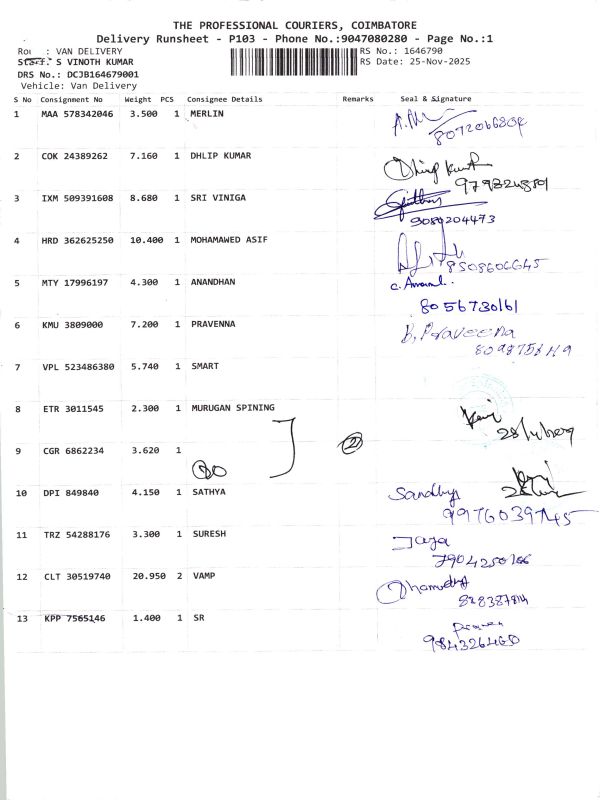 THE PROFESSIONAL COURIERS, COIMBATORE
Delivery Runsheet - P103 - Phone No.:9047080280 - Page No.:1
: VAN DELIVERY RS No.: 1646790
Staff: S VINOTH KUMAR RS Date: 25-Nov-2025
DRS No.: DCJB164679001
Vehicle: Van Delivery
S No Consignment No Weight PCS Consignee Details Remarks Seal & Signature
1 MAA 578342046 3.500 1 MERLIN
2 COK 24389262 7.160 1 DHLIP KUMAR
Dhilip Kumar
3 IXM 509391608 8.680 1 SRI VINIGA
9089204473
4 HRD 362625250 10.400 1 MOHAMAWED ASIF
8508606645
5 MTY 17996197 4.300 1 ANANDHAN
8056730161
6 KMU 3809000 7.200 1 PRAVENNA B. Praveena
7 VPL 523486380 5.740 1 SMART
8 ETR 3011545 2.300 1 MURUGAN SPINING
9 CGR 6862234 3.620 1 2
10 DPI 849840 4.150 1 SATHYA Sandhya
9976039745
11 TRZ 54288176 3.300 1 SURESH Jaya
7904250166
12 CLT 30519740 20.950 2 VAMP
13 KPP 7565146 1.400 1 SR
9843264460